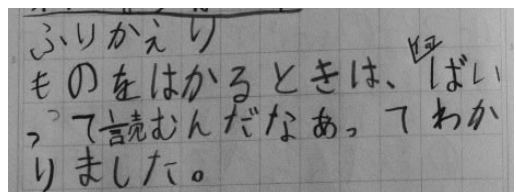 ふりかえり
ものをはかるときは、何ばい
って読むんだなあってわか
りました。